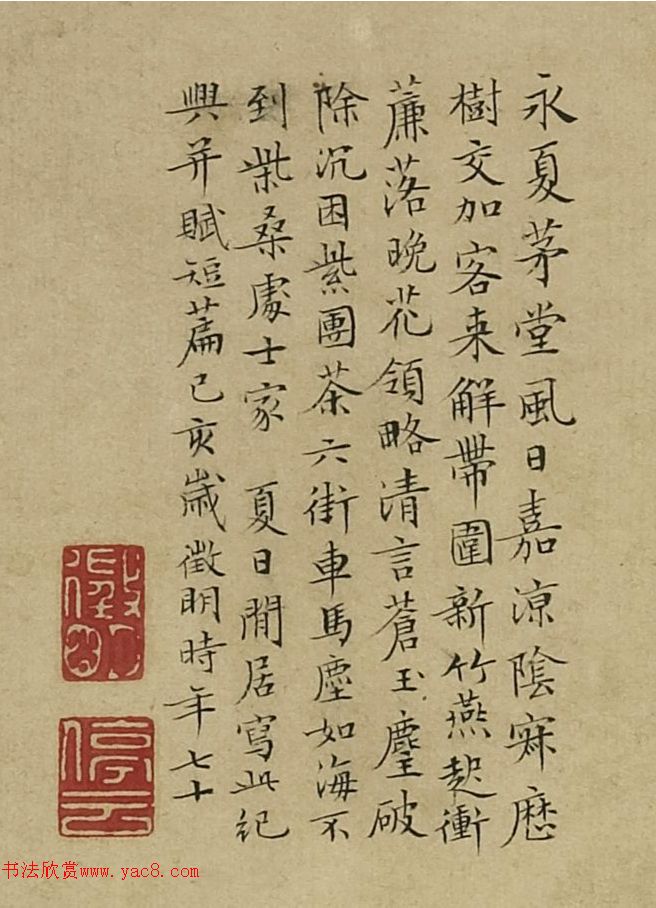 永夏茅堂風日嘉涼陰寂歷
樹交加客来解帶圍新竹燕起衝
簾落晚花領略清言蒼玉麈破
除沉困紫團茶六街車馬塵如海不
到柴桑處士家 夏日閒居寫此紀
興并賦短篇己亥歲徵明時年七十
徵明
停云
书法欣赏www.yac8.com